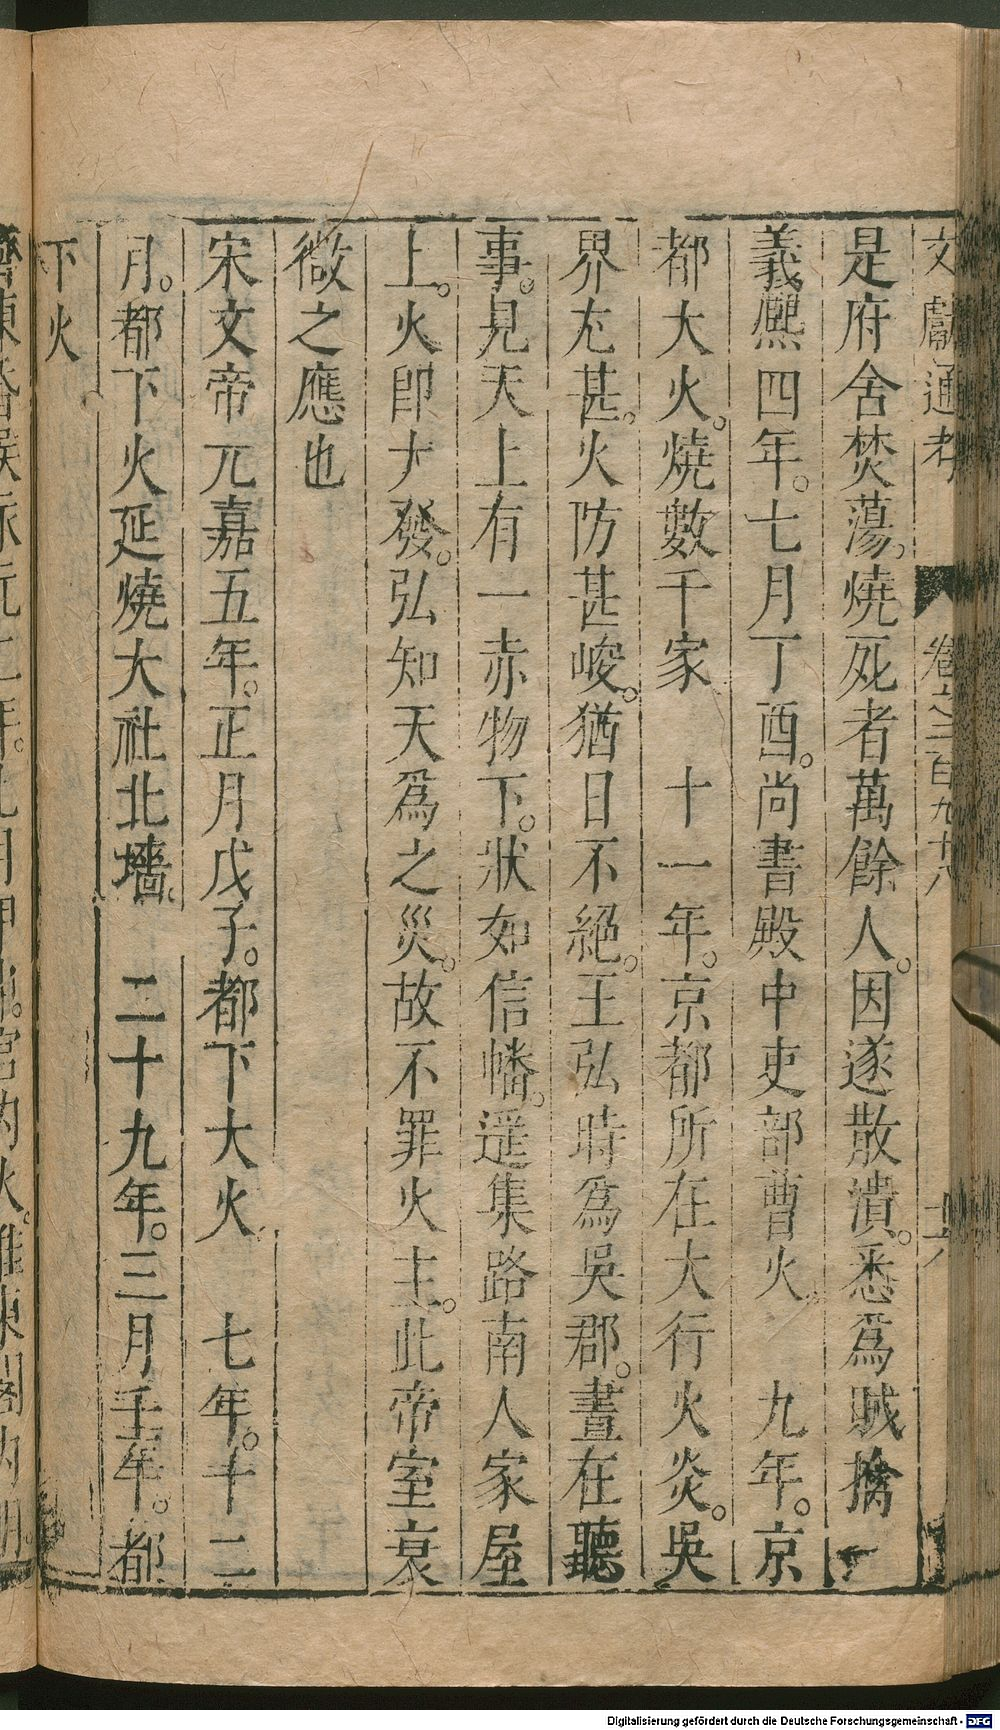 文獻通考 卷之二百九十八 十六
是府舍焚蕩。燒死者萬餘人。因遂散潰。悉爲賊擒
義熈四年。七月丁酉。尚書殿中吏部曹火 九年。京
都大火。燒數千家 十一年。京都所在大行火炎。吳
界尤甚。火防甚峻。猶日不絕。王弘時爲吳郡。晝在聽
事。見天上有一赤物下。狀如信幡。遥集路南人家屋
上。火即大發。弘知天爲之災。故不罪火主。此帝室衰
微之應也
宋文帝元嘉五年。正月戊子。都下大火 七年。十二
月。都下火延燒大社北墻。 二十九年。三月壬午。都
下火
Digitalisierung gefördert durch die Deutsche Forschungsgemeinschaft - DFG